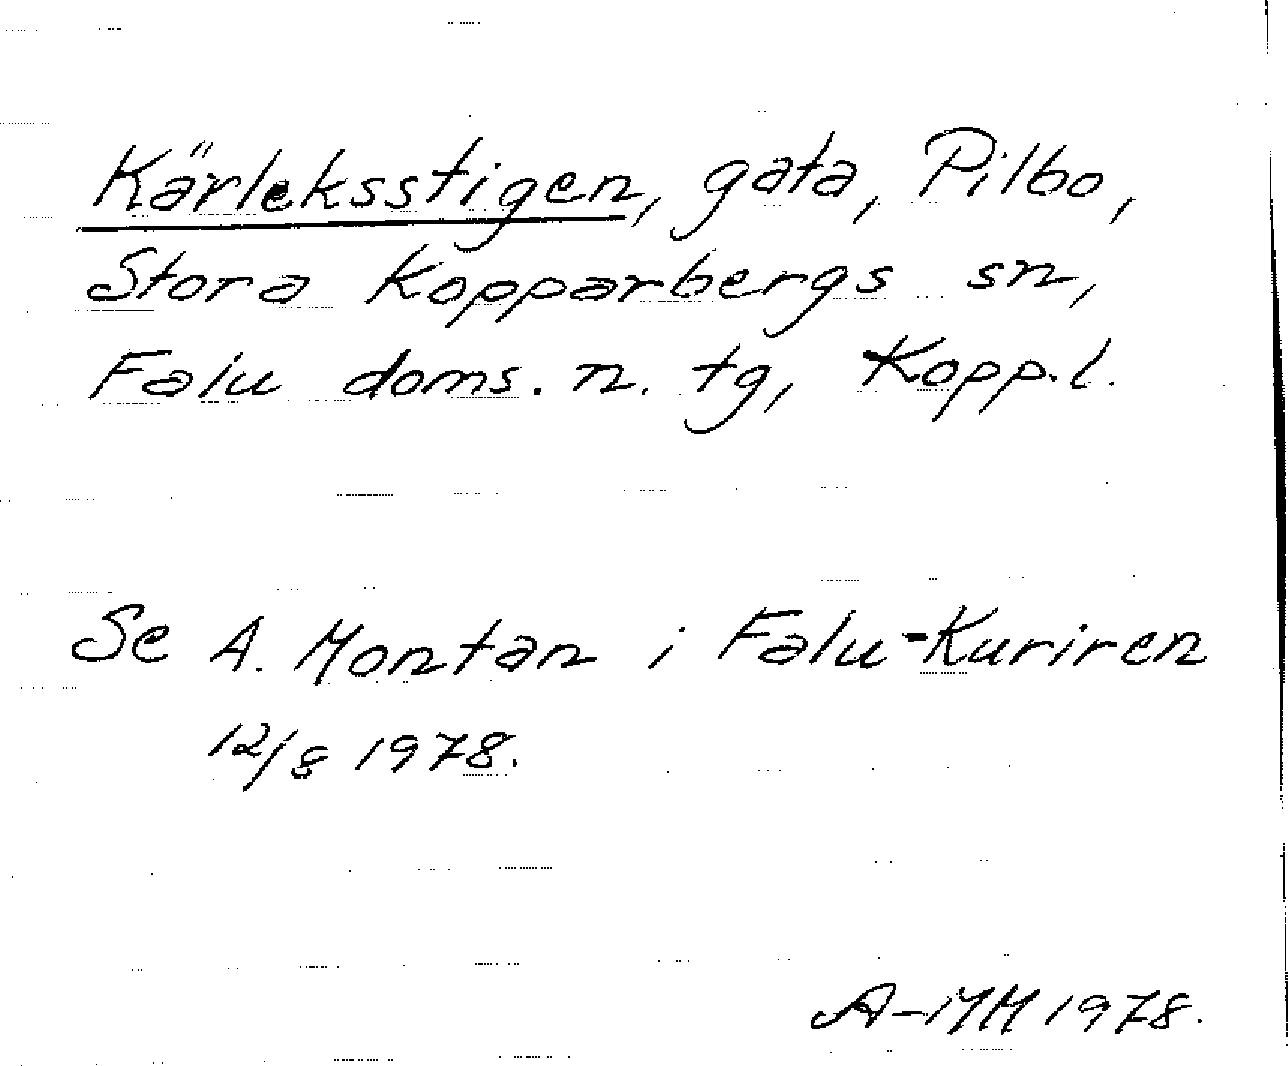 Kärleksstigen, gata, Pilbo,
Stora Kopparbergs sn,
Falu doms. n. tg, Kopp.l.
Se A. Montan i Falu-Kuriren
12/8 1978.
A-MH 1978.